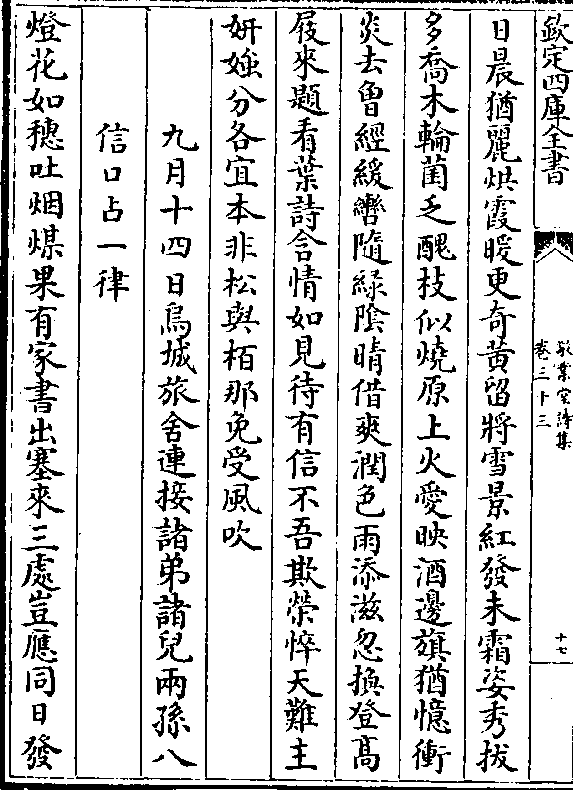 欽定四庫全書
敬業堂詩集
卷三十三
十七
日晨猶麗烘霞暖更奇黃留將雪景紅發未霜姿秀拔
多喬木輪菌乏醜枝似燒原上火愛映酒邊旗猶憶衝
炎去曾經緩轡隨緑陰晴借爽潤色雨添滋忽換登高
屐來題看葉詩含情如見待有信不吾欺榮悴天難主
妍媸分各宜本非松與栢那免受風吹
九月十四日烏城旅舍連接諸弟諸兒兩孫八
信口占一律
燈花如穗吐烟煤果有家書出塞來三處豈應同日發